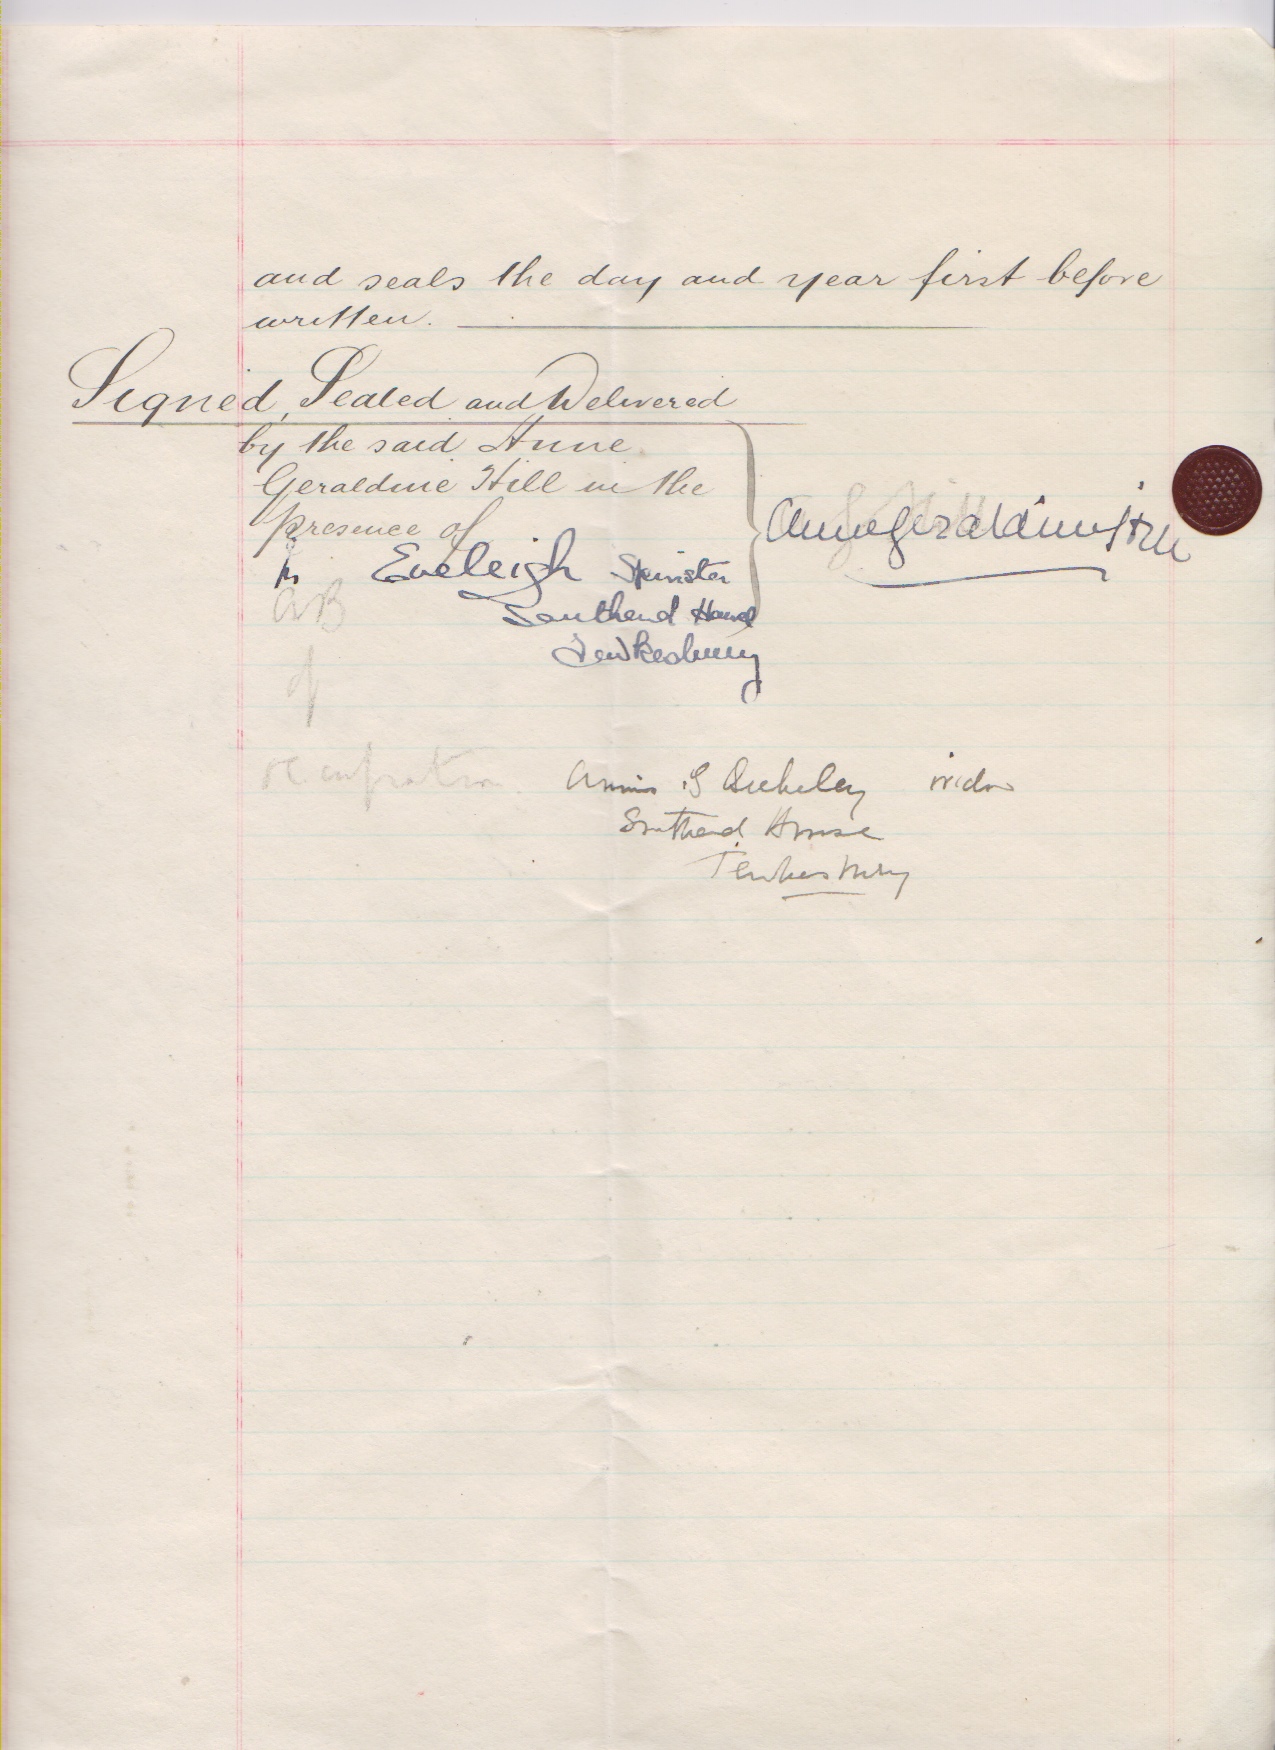 and seals the day and year first before
written.
Signed, Sealed and Delivered
by the said Anne
Geraldine Hill in the
presence of
Anne Geraldine Hill
Eveleigh Spinster
Southend House
Tewkesbury
AB
of
occupation
Annie G widow
Southend House
Tewkesbury